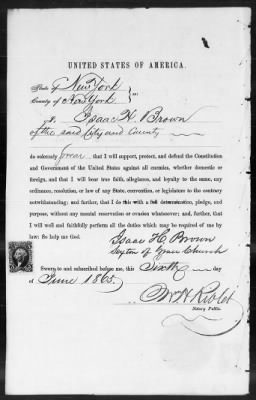 UNITED STATES OF AMERICA.
State of New York
County of New York } ss:
I, Isaac H. Brown
of the said City and County
do solemnly swear that I will support, protect, and defend the Constitution
and Government of the United States against all enemies, whether domestic
or foreign, and that I will bear true faith, allegiance, and loyalty to the same, any
ordinance, resolution, or law of any State, convention, or legislature to the contrary
notwithstanding; and further, that I do this with a full determination, pledge, and
purpose, without any mental reservation or evasion whatsoever; and, further, that
I will well and faithfully perform all the duties which may be required of me by
law: So help me God.
Isaac H. Brown
Sexton of Grace Church
Sworn to and subscribed before me, this Sixth day
of June 1865.
Notary Public.